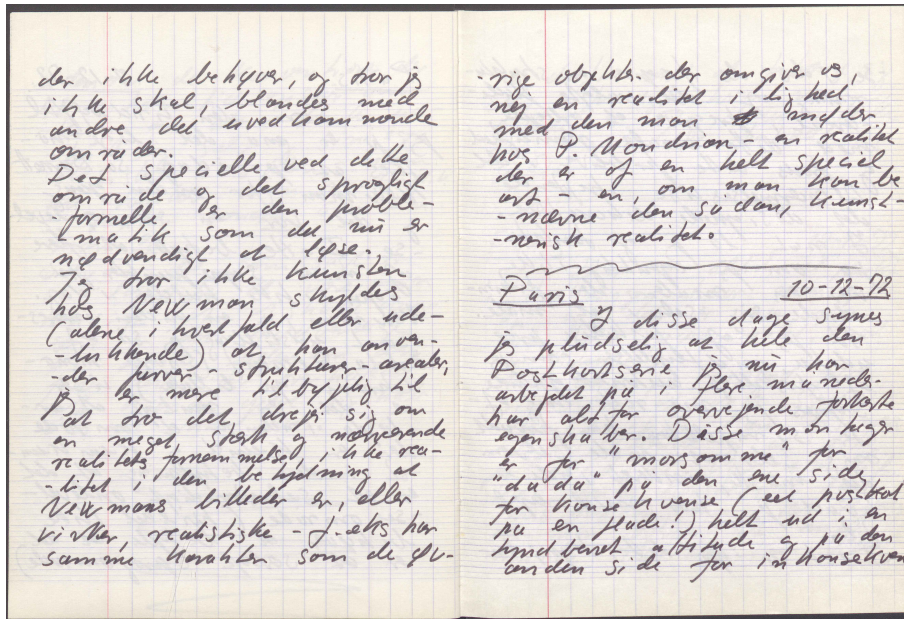 der ikke behøver, og tror jeg
ikke skal, blandes med
andre det uvedkommende
områder.
Det specielle ved dette
område og det sprogligt
-formelle er den proble-
-matik som det nu er
nødvendigt at løse.
Jeg tror ikke kunsten
hos Newman skyldes
(alene i hvert fald eller ude-
-lukkende) at han anven-
-der farver - strukturer - arealer,
jeg er mere tilbøjelig til
at tro det drejer sig om
en meget stærk og nærværende
realitets fornemmelse, ikke rea-
-litet i den betydning at
Newmans billeder er, eller
virker, realistiske - f.eks har
samme karakter som de øv-
-rige objekter der omgiver os,
nej en realitet i lighed
med den man møder
hos P. Mondrian - en realitet
der er af en helt speciel
art - en, om man kan be
-nævne den sådan, kunst-
-nerisk realitet.
Paris 10-12-72
I disse dage synes
jeg pludselig at hele den
Postkortserie jeg nu har
arbejdet på i flere måneder
har alt for overvejende forkerte
egenskaber. Disse montager
er for "morsomme" for
"dada" på den ene side,
for konsekvense (eet postkort
på en flade!) helt ud i en
tyndbenet attitude og på den
anden side for inkonsekven